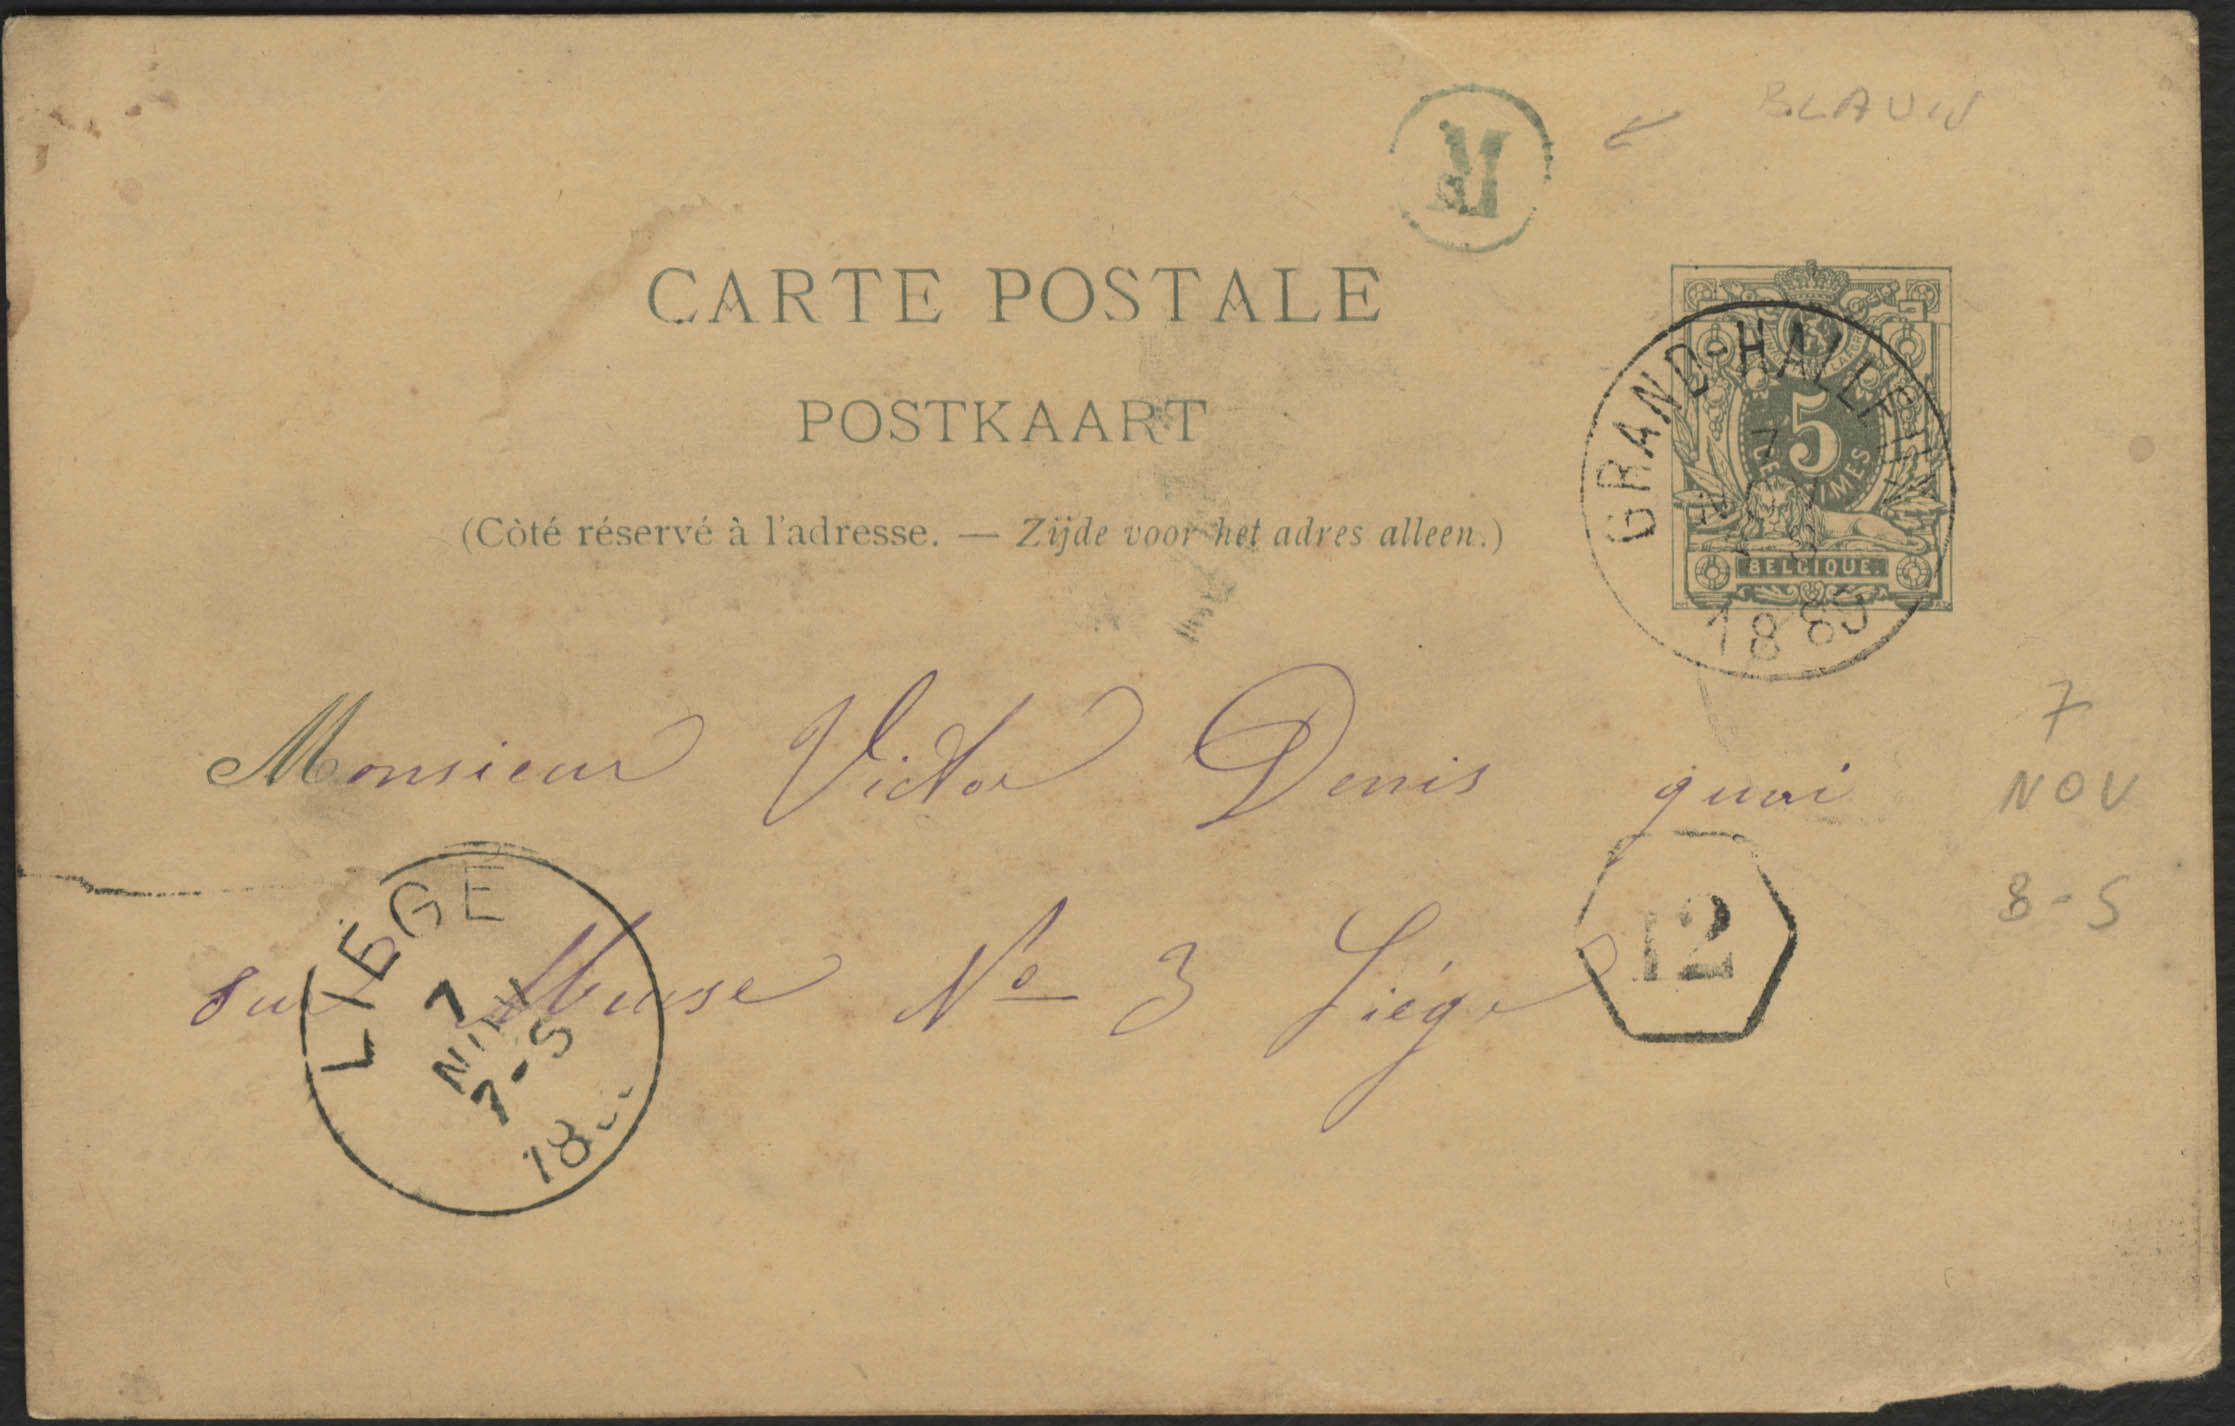 BLAUW
R
CARTE POSTALE
POSTKAART
(Côté réservé à l'adresse. — Zijde voor het adres alleen.)
5
CENTIMES
BELGIQUE.
GRAND-HALLEUX
7
NOV
8-S
1889
Monsieur Victor Denis quai
sur Meuse No 3 Liége
LIÉGE
7
NOV
7-S
18
12
7
NOV
8-S